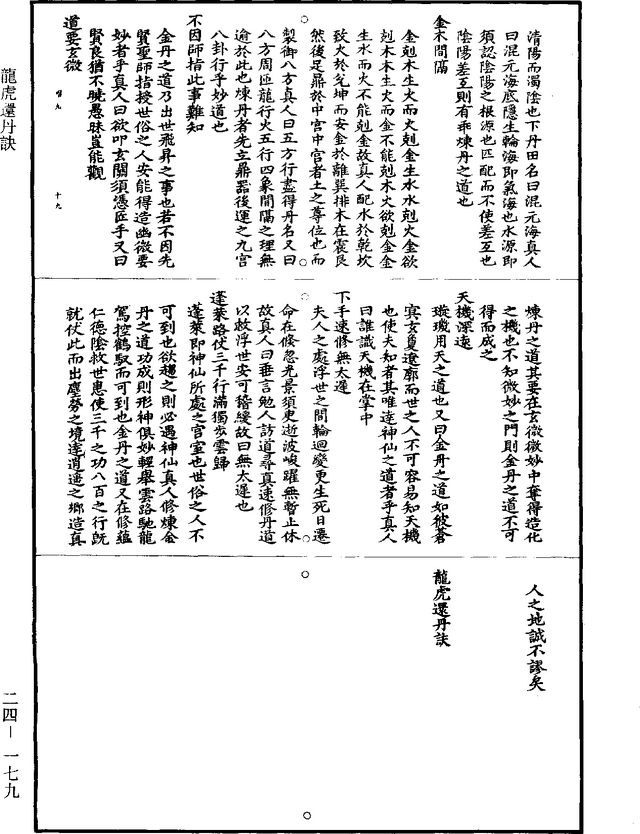 清陽而濁陰也下丹田名曰混元海真人
曰混元海底隱生輪海即氣海也水源即
須認陰陽之根源也匹配而不使差互也
陰陽差互則有乖煉丹之道也
金木間隔
金剋木生火而火剋金生水水剋火金欲
剋木木生火而金不能剋木火欲剋金金
生水而火不能剋金故真人配水於乾坎
致火於兌坤而安金於離巽排木在震艮
然後足鼎於中宮中宮者土之尊位也而
製御八方真人曰五方行盡得丹名又曰
八方周匝龍行火五行四象間隔之理無
逾於此也煉丹者先立鼎器後運之九宮
八卦行乎妙道也
不因師指此事難知
金丹之道乃出世飛昇之事也若不因先
賢聖師指授世俗之人安能得造幽微要
妙者乎真人曰欲叩玄關須憑匠手又曰
賢良猶不曉愚昧豈能觀
道要玄微
煉丹之道其要在玄微微妙中奪得造化
之機也不知微妙之門則金丹之道不可
得而成之
天機深遠
璇璣用天之道也又曰金丹之道如彼蒼
冥玄夐遼廓而世之人不可容易知天機
也使夫知者其唯達神仙之道者乎真人
曰誰識天機在掌中
下手速修無太遲
夫人之處浮世之間輪迴變更生死日遷
命在倏忽光景須臾逝波峻躍無暫止休
故真人曰垂言勉人訪道尋真速修丹道
以救浮世安可稽緩故曰無太遲也
蓬萊路仗三千行滿獨步雲歸
蓬萊即神仙所處之宮室也世俗之人不
可到也欲趨之則必遇神仙真人修煉金
丹之道功成則形神俱妙輕舉雲路馳龍
駕控鶴馭而可到也金丹之道又在修蘊
仁德陰救世患使三千之功八百之行既
就伏此而出塵勞之境逹逍遥之鄉造真
人之地誠不謬矣
龍虎還丹訣
龍虎還丹訣
十九
二四—一七九